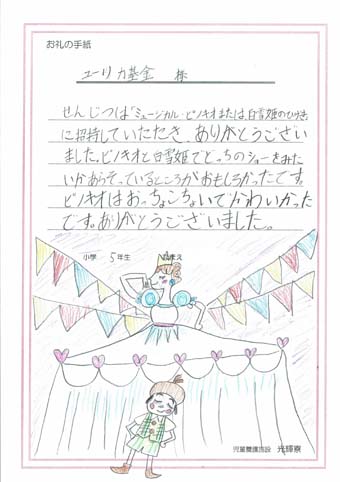 お礼の手紙
ユーリカ基金 様
せんじつは「ミュージカル・ピノキオまたは、白雪姫のひげき」
に招待していただき、ありがとうござい
ました。ピノキオと白雪姫でどっちのショーをみた
いかあらそっているところがおもしろかったです。
ピノキオはおっちょこちょいでかわいかった
です。ありがとうございました。
小学 5年生 なまえ
児童養護施設 光輝寮